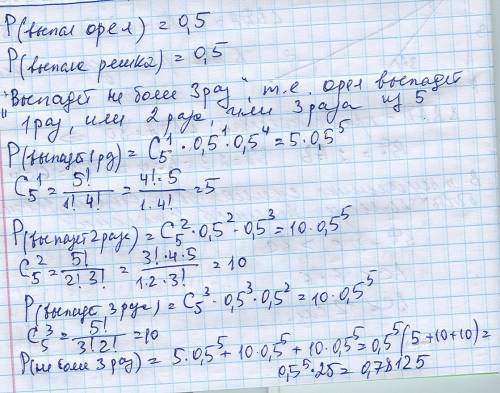 P(выпал орел) = 0,5
P(выпала решка) = 0,5
"Выпадет не более 3 раз", т.е. орел выпадет
1 раз, или 2 раза, или 3 раза из 5
P(выпадет 1 рд) = C₅¹ · 0,5¹ · 0,5⁴ = 5 · 0,5⁵
C₅¹ = 5!/(1! 4!) = (4! · 5)/(1 · 4!) = 5
P(выпадет 2 раза) = C₅² · 0,5² · 0,5³ = 10 · 0,5⁵
C₅² = 5!/(2! 3!) = (3! · 4 · 5)/(1 · 2 · 3!) = 10
P(выпадет 3 раза) = C₅³ · 0,5³ · 0,5² = 10 · 0,5⁵
C₅³ = 5!/(3! 2!) = 10
P(не более 3 раз) = 5 · 0,5⁵ + 10 · 0,5⁵ + 10 · 0,5⁵ = 0,5⁵(5 + 10 + 10) =
0,5⁵ · 25 = 0,78125